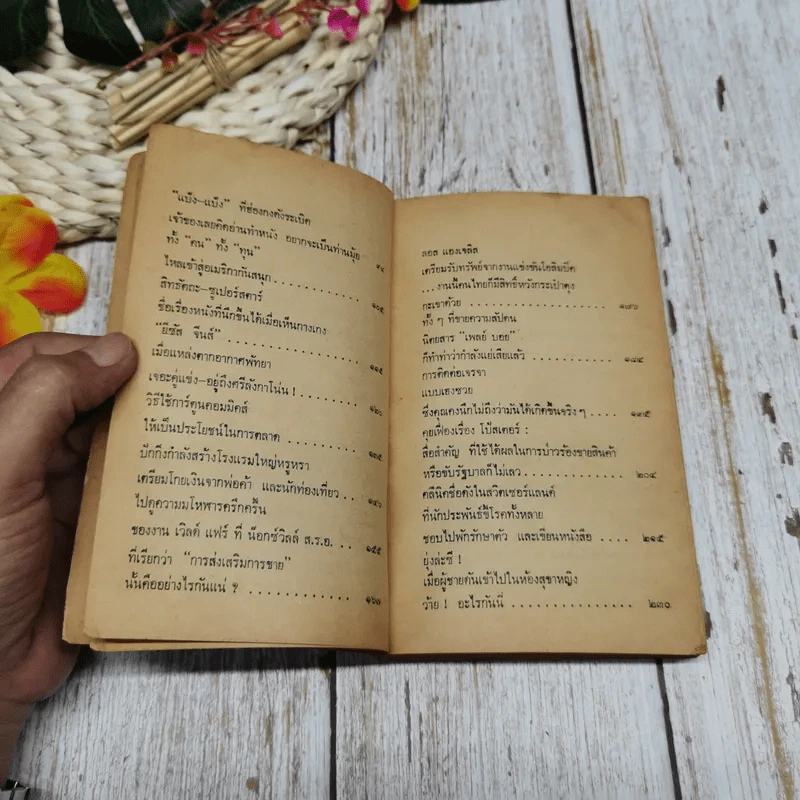 "แบ๊ง–แบ๊ง" ที่ฮ่องกงดังระเบิด
เจ้าของเลยคิดอ่านทำหนัง อยากจะเป็นท่านมุ้ย
ทั้ง "คน" ทั้ง "ทุน"
ไหลเข้าสู่อเมริกากันสนุก . . . . . . . . . . . . ๑๐๕
สิทธัตถะ–ซูเปอร์สตาร์
ชื่อเรื่องหนังที่นึกขึ้นได้เมื่อเห็นกางเกง
"ยีซัส จีนส์" . . . . . . . . . . . . . . . . . . ๑๑๕
เมื่อแหล่งตากอากาศพัทยา
เจอะคู่แข่ง–อยู่ถึงศรีลังกาโน่น ! . . . . . . . . ๑๒๖
วิธีใช้การ์ตูนคอมมิคส์
ให้เป็นประโยชน์ในการตลาด . . . . . . . . . . . ๑๓๕
ปักกิ่งกำลังสร้างโรงแรมใหญ่หรูหรา
เตรียมโกยเงินจากพ่อค้า และนักท่องเที่ยว . . . ๑๔๖
ไปดูความมโหฬารครึกครื้น
ของงาน เวิลด์ แฟร์ ที่ น็อกซ์วิลล์ ส.ร.อ. . . . ๑๕๕
ที่เรียกว่า "การส่งเสริมการขาย"
นั้นคืออย่างไรกันแน่ ? . . . . . . . . . . . . ๑๖๗
ลอส แองเจลิส
เตรียมรับทรัพย์จากงานแข่งขันโอลิมปิค
. . .งานนี้คนไทยก็มีสิทธิ์หวังกระเป๋าตุง
กะเขาด้วย . . . . . . . . . . . . . . . . . . ๑๗๖
ทั้ง ๆ ที่ขายความสัปดน
นิตยสาร "เพลย์ บอย"
ก็ทำท่าว่ากำลังแย่เสียแล้ว . . . . . . . . . . . ๑๘๔
การติดต่อเจรจา
แบบเฮงซวย
ซึ่งคุณคงนึกไม่ถึงว่ามันได้เกิดขึ้นจริง ๆ . . . . ๑๙๕
คุยเฟื่องเรื่อง โปสเตอร์ :
สื่อสำคัญ ที่ใช้ได้ผลในการป่าวร้องขายสินค้า
หรือขับรัฐบาลก็ไม่เลว . . . . . . . . . . . . . ๒๐๔
คลีนิคชื่อดังในสวิตเซอร์แลนด์
ที่นักประพันธ์ขี้โรคทั้งหลาย
ชอบไปพักรักษาตัว และเขียนหนังสือ . . . . . ๒๑๕
ยุ่งล่ะซี !
เมื่อผู้ชายดันเข้าไปในห้องสุขาหญิง
ว้าย ! อะไรกันนี่ . . . . . . . . . . . . . . . ๒๓๐